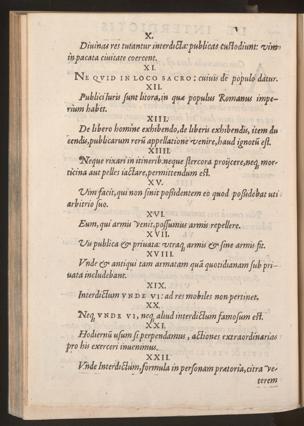 X.
Diuinas res tutantur interdicta: publicas custodiunt: vim
in pacata ciuitate coercent.
XI.
NE QVID IN LOCO SACRO: cuiuis de populo datur.
XII.
Publici iuris sunt litora, in quæ populus Romanus impe-
rium habet.
XIII.
De libero homine exhibendo, de liberis exhibendis, item du
cendis, publicarum rerū appellatione venire, haud ignotū est.
XIIII.
Neque rixari in itinerib. neque stercora proijcere, neq, mor-
ticina aut pelles iactare, permittendum est.
XV.
Vim facit, qui non sinit possidentem eo quod possidebat uti
arbitrio suo.
XVI.
Eum, qui armis venit, possumus armis repellere.
XVII.
Vis publica & priuata: utraq, armis & sine armis fit.
XVIII.
Vnde & antiqui tam armatam quā quotidianam sub pri-
uata includebant.
XIX.
Interdictum VNDE VI: ad res mobiles non pertinet.
XX.
Neq, VNDE VI, neq, aliud interdictum famosum est.
XXI.
Hodiernū usum si perpendamus, actiones extraordinarias
pro his exerceri inuenimus.
XXII.
Vnde Interdictum, formula in personam prætoria, citra ve-
terem